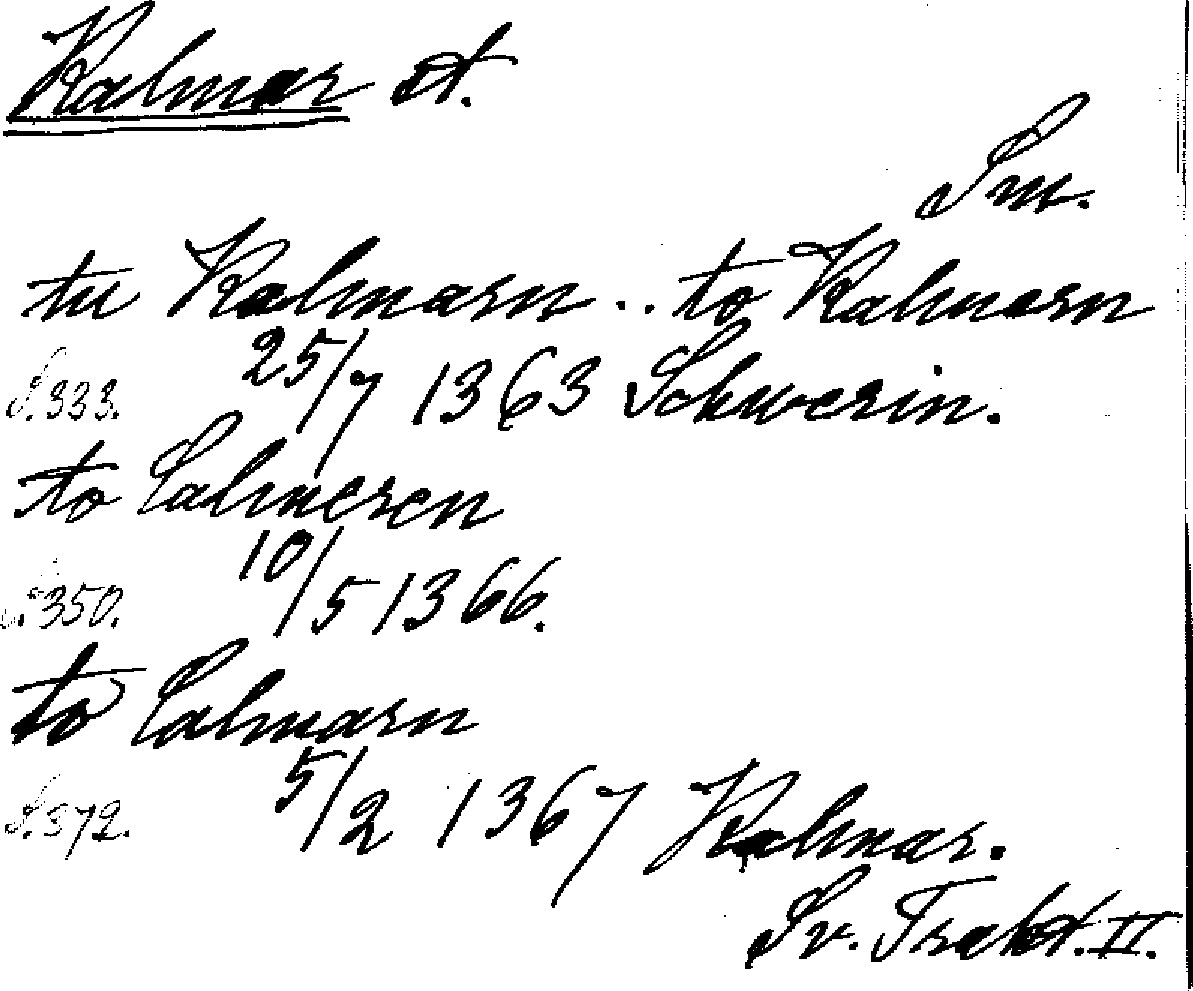 Kalmar st.
Sm.
tu Kalmarn .. to Kalmarn
S. 333. 25/7 1363 Schwerin.
to Calmeren
S. 350. 10/5 1366.
to Calmarn
S. 372. 5/2 1367 Kalmar.
Sv. Trakt. II.